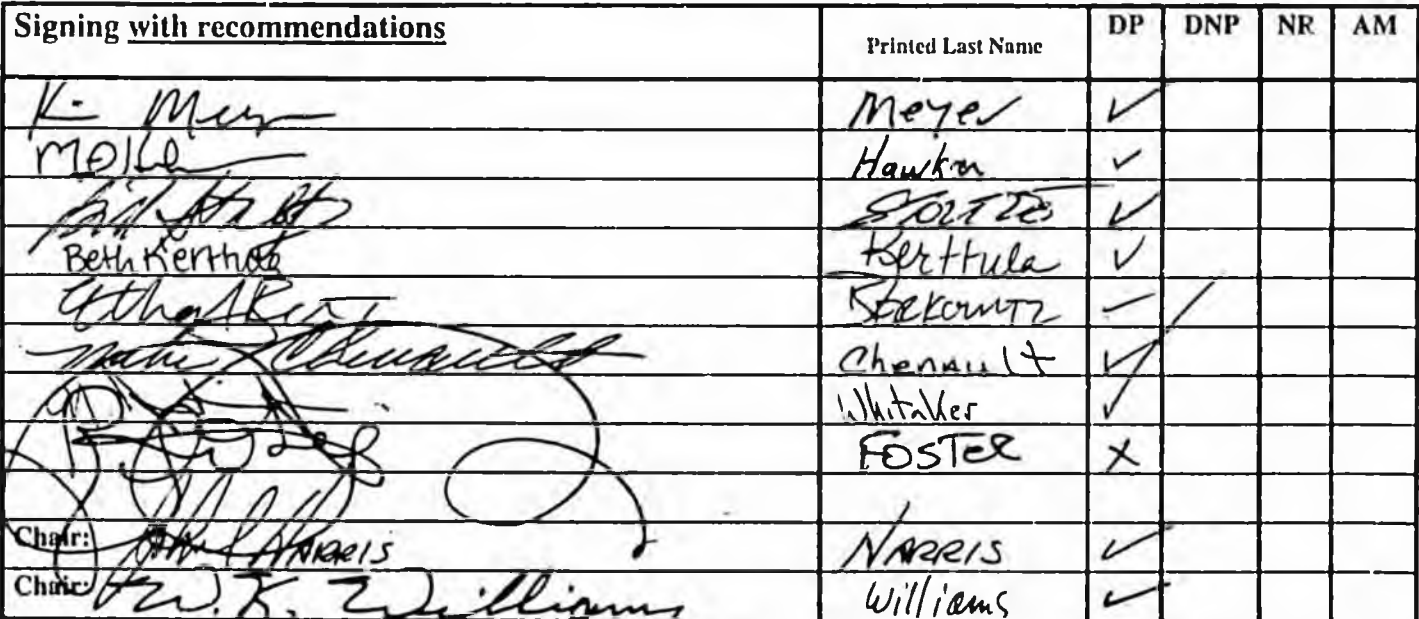 Signing with recommendations Printed Last Name DP DNP NR AM
K. Meyer Meyer ✓
Hawker ✓
Stoltze ✓
Beth Kerttula Kerttula ✓
Berkowitz
Chenault Chenault ✓
Whitaker ✓
FOSTER X
Chair: HARRIS HARRIS ✓
Chair: W. K. Williams Williams ✓